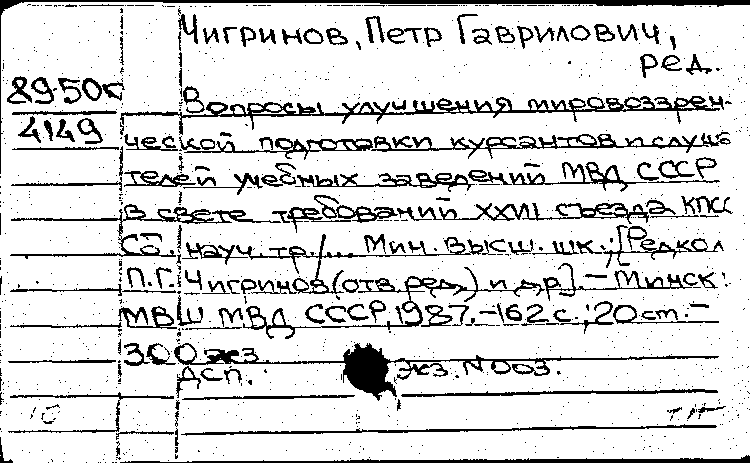 Чигринов, Петр Гаврилович,
ред.
89-50к
4149
Вопросы улучшения мировоззрен-
ческой подготовки курсантов и слуша
телей учебных заведений МВД СССР
в свете требований XXVII съезда КПСС
Сб. науч. тр./... Мин. высш. шк.; [Редкол
П.Г. Чигринов (отв. ред.) и др]. – Минск:
МВШ МВД СССР, 1987. – 162 с.; 20 ст. –
300 экз.
ДСП. Экз. N 003.